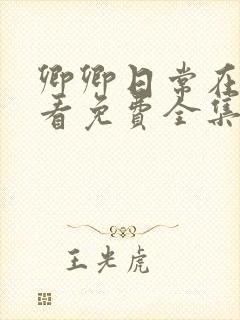 卿卿日常在
看免费全集
王光虎